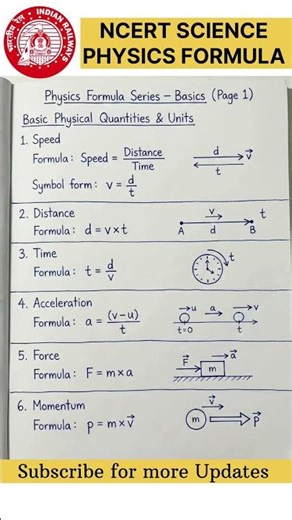 NCERT SCIENCE
PHYSICS FORMULA
INDIAN RAILWAYS
Physics Formula Series – Basics (Page 1)
Basic Physical Quantities & Units
1. Speed
Formula: Speed = Distance / Time
d
v⃗
t
Symbol form: v = d/t
2. Distance
Formula: d = v×t
v
t
A d B
3. Time
Formula: t = d/v
t
4. Acceleration
Formula: a = (v-u)/t
u a v
t=0 t
5. Force
Formula: F = m×a
F⃗ m a⃗
6. Momentum
Formula: p = m×v⃗
v⃗
m p⃗
Subscribe for more Updates